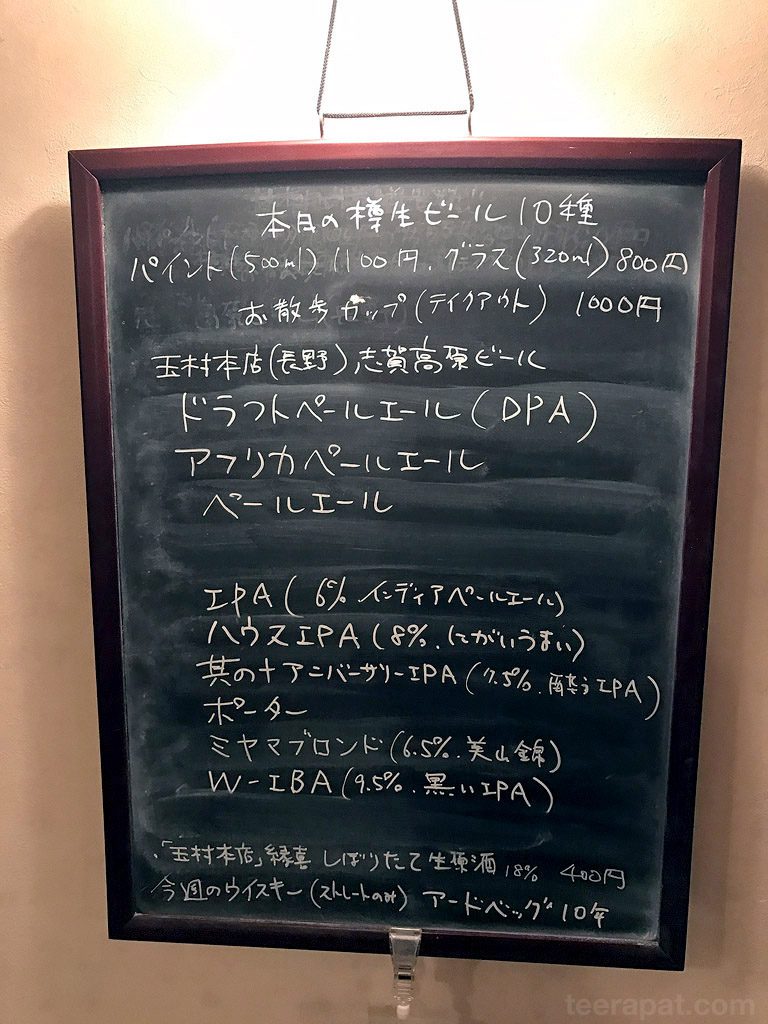 本日の樽生ビール10種
パイント(500ml) 1100円、グラス(320ml) 800円
お散歩カップ(テイクアウト) 1000円
玉村本店(長野)志賀高原ビール
ドラフトペールエール(DPA)
アフリカペールエール
ペールエール
IPA(6%、インディアペールエール)
ハウスIPA(8%、にがいうまい)
其の十アニバーサリーIPA(7.5%、酔うIPA)
ポーター
ミヤマブロンド(6.5%、美山錦)
W-IBA(9.5%、黒いIPA)
・「玉村本店」縁喜 しぼりたて生原酒 18% 400円
今週のウイスキー(ストレートのみ) アードベッグ10年
teerapat.com